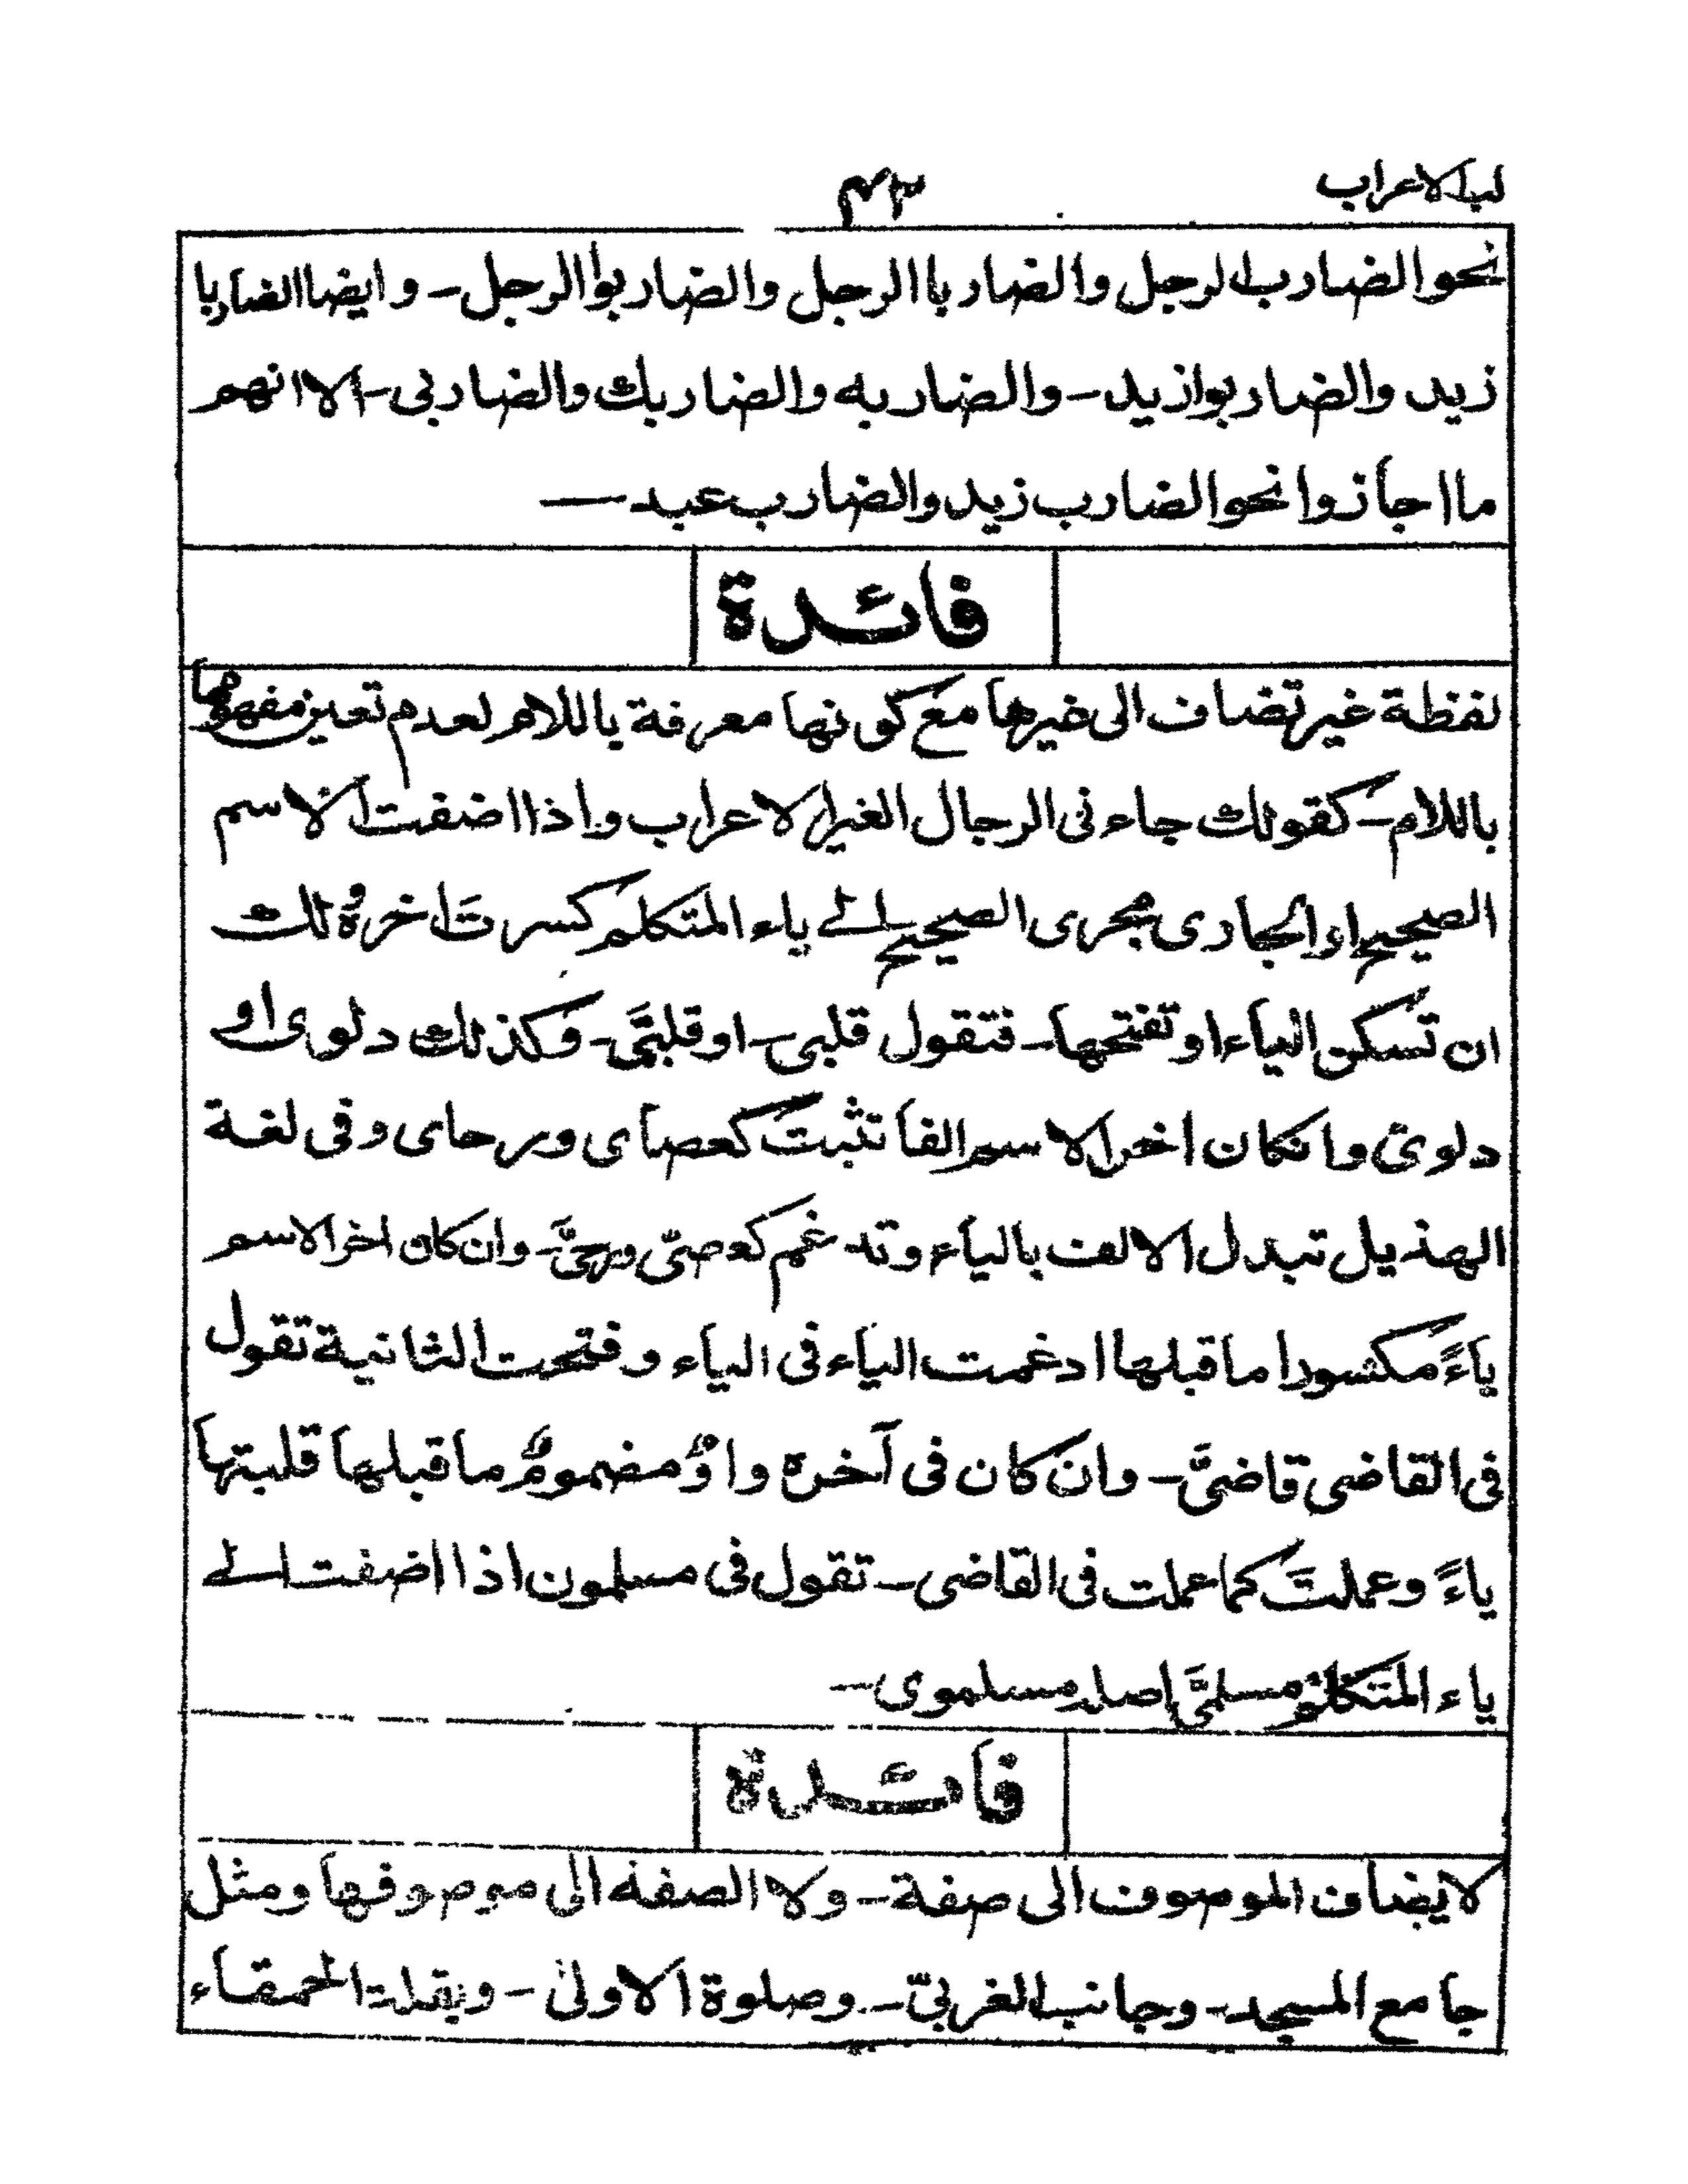 لب الاعراب
۴۳
نحو الضارب الرجل والضاربا الرجل والضاربوا الرجل - وايضا الضاربا
زيد والضاربوا زيد - والضاربه والضاربك والضاربى - الا انهم
ما اجازوا نحو الضارب زيد والضارب عبد —
فائدة
لفظة غير تضاف الى غيرها مع كونها معرفة باللام لعدم تعين مفهومها
باللام - كقولك جاءنى الرجال الغير الاعراب واذا اضفت الاسم
الصحيح او الجارى مجرى الصحيح الے ياء المتكلم كسرتَ اخرهٗ ولك
ان تسكن الياء او تفتحها - فتقول قلبى - او قلبىَ - وكذلك دلوى او
دلوىَ وان كان اخر الاسم الفا تثبت كعصاى ورحاى وفى لغة
الهذيل تبدل الالف بالياء وتدغم كعصىّ ورحىَّ - وان كان اخر الاسم
ياءً مكسورا ما قبلها ادغمت الياء فى الياء وفتحت الثانية تقول
فى القاضى قاضىَّ - وان كان فى آخره واوٌ مضمومٌ ما قبلها قلبتها
ياءً وعملتَ كما عملت فى القاضى - تقول فى مسلمون اذا اضفت الے
ياء المتكلم مسلمىَّ اصله مسلموى -
فائدة
لا يضاف الموصوف الى صفة - ولا الصفة الى موصوفها ومثل
جامع المسجد - وجانب الغربىّ - وصلوة الاولىٰ - وبقلة الحمقاء